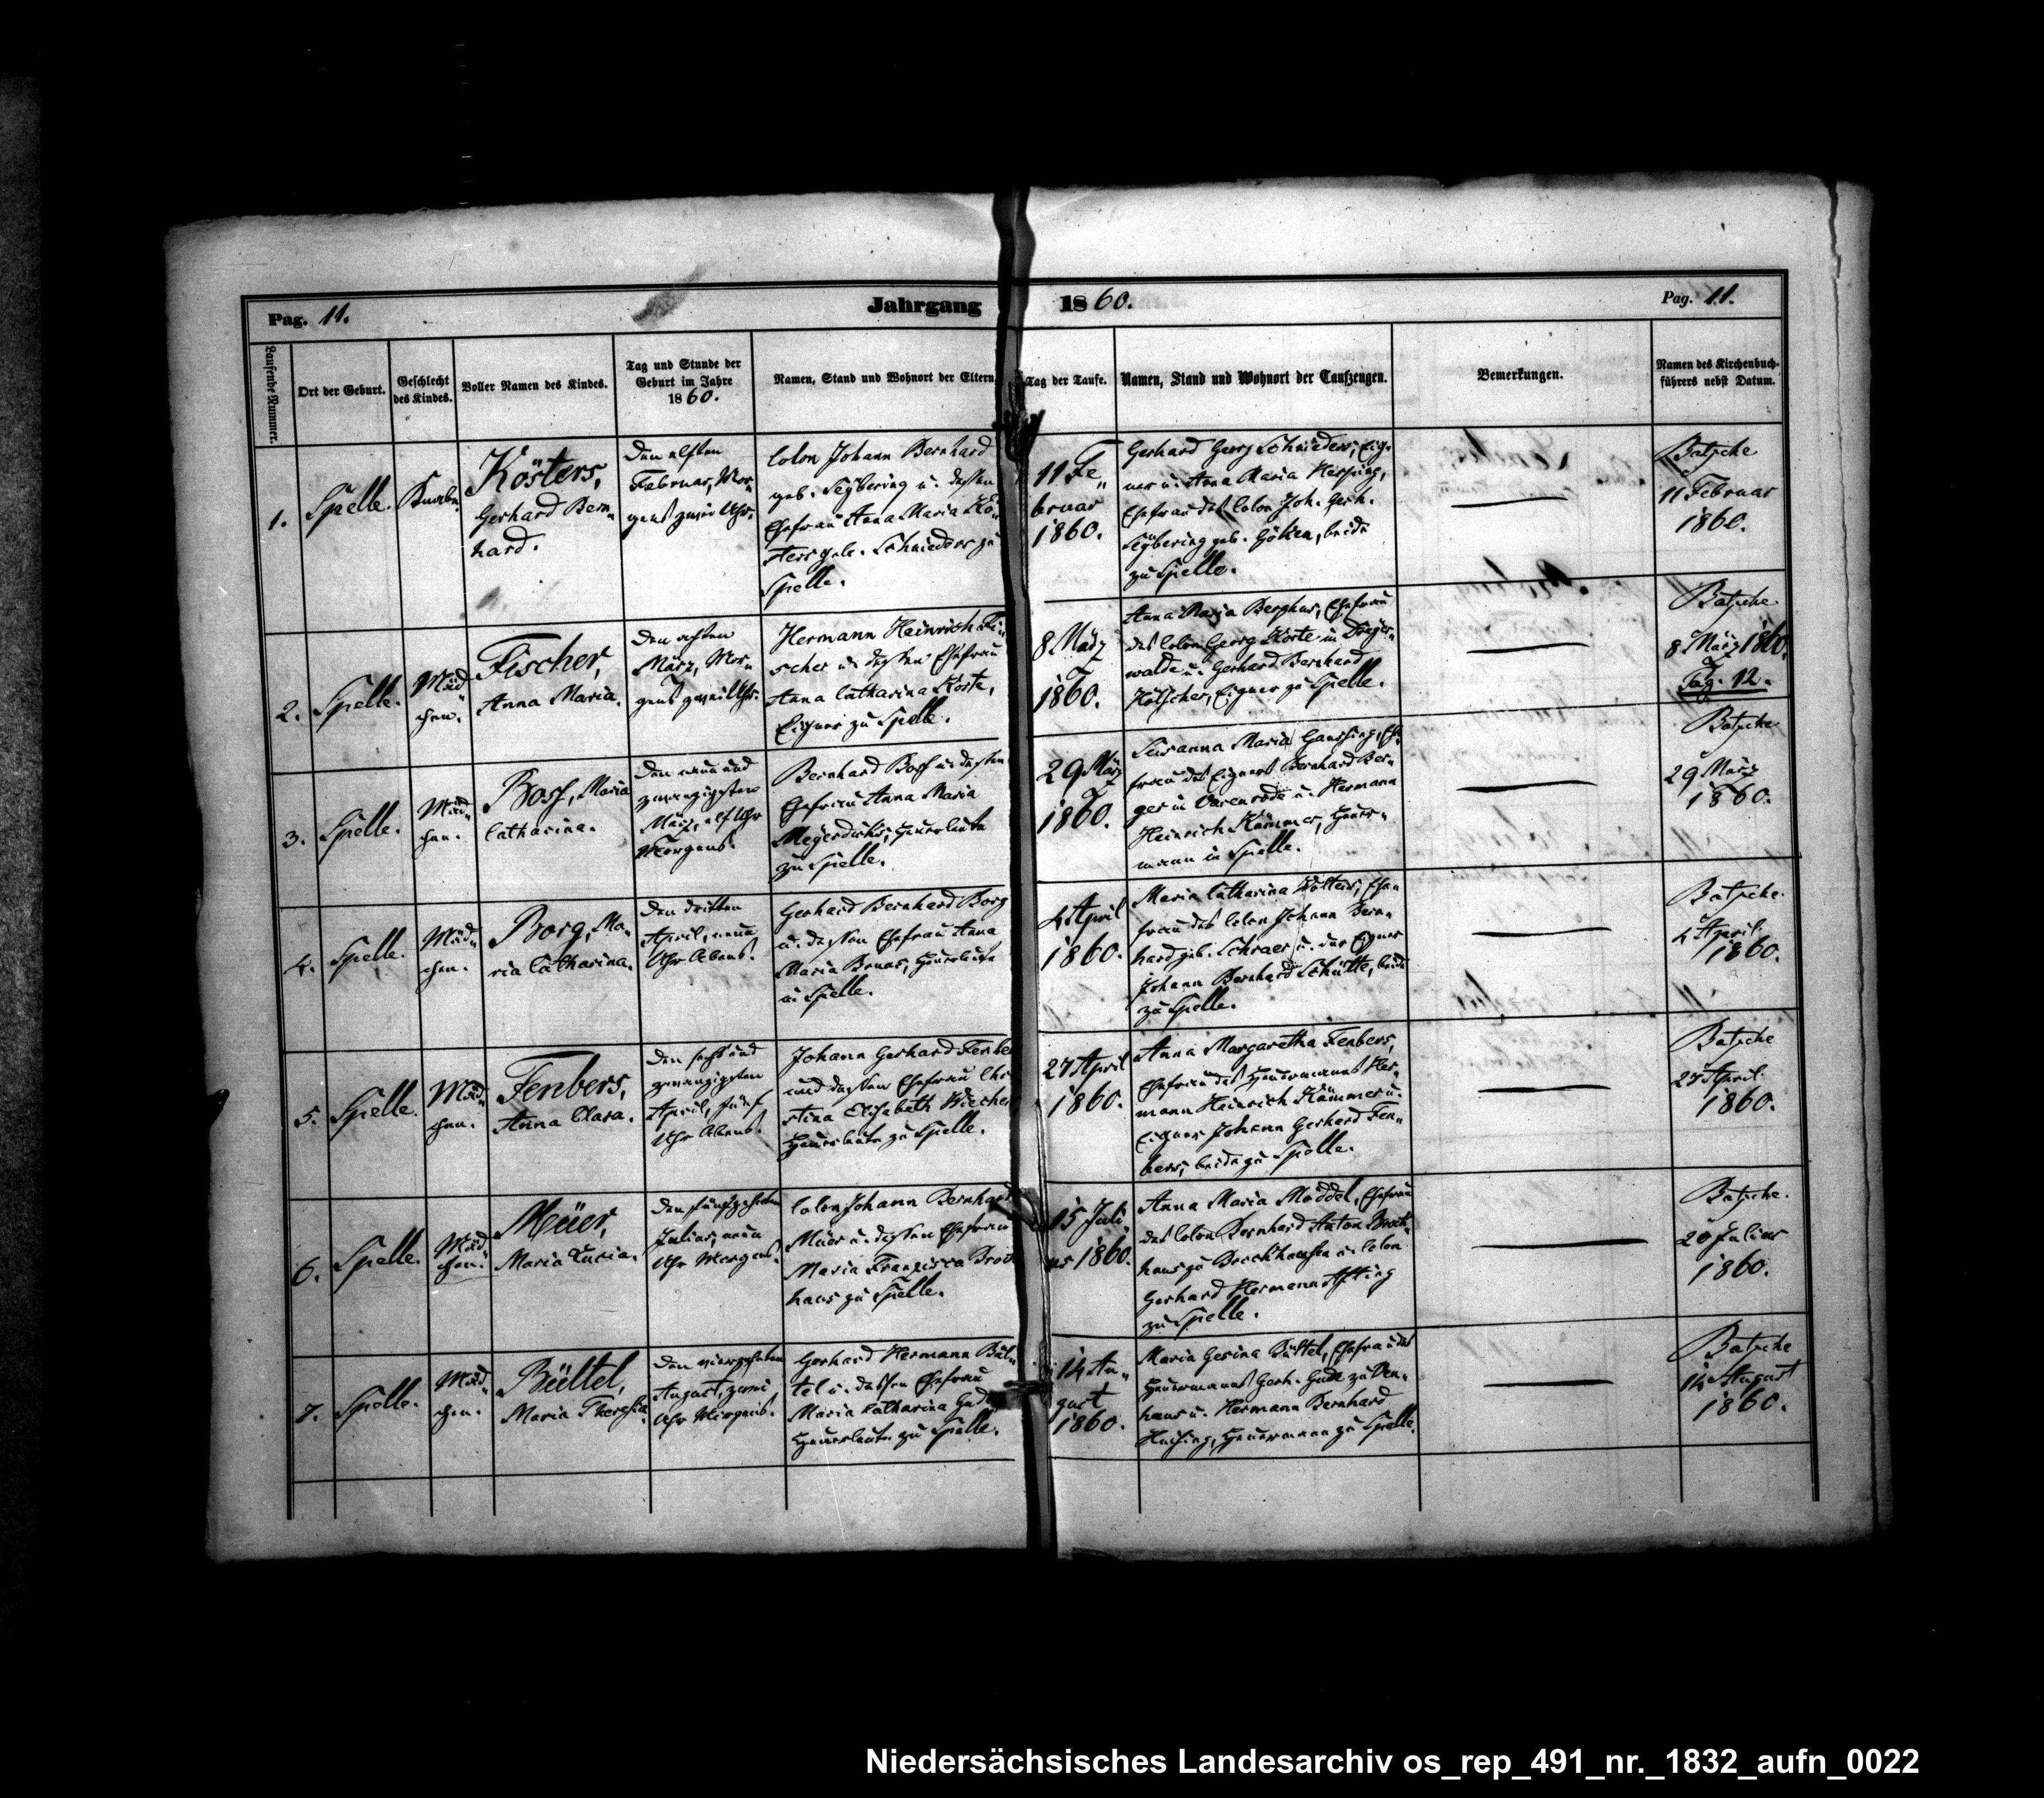 Pag. 11.
Jahrgang 1860.
Pag. 11.
Laufende Nummer.
Ort der Geburt.
Geschlecht
des Kindes.
Voller Namen des Kindes.
Tag und Stunde der
Geburt im Jahre
1860.
Namen, Stand und Wohnort der Eltern
Tag der Taufe.
Namen, Stand und Wohnort der Taufzeugen.
Bemerkungen.
Namen des Kirchenbuch-
führers nebst Datum.
1.
Spelle.
Knabe.
Kösters,
Gerhard Bern„
hard.
Den elften
Februar, Mor„
gens zwei Uhr.
Colon Johann Bernhard
geb. Segbering u. dessen
Ehefrau Anna Maria Kö„
sters geb. Schnieders zu
Spelle.
11 Fe„
bruar
1860.
Gerhard Georg Schnieders, Eig„
ner u. Anna Maria
Ehefrau des Colon Joh. Gerh.
Segbering geb. Göken, beide
zu Spelle.
Batsche
11 Februar
1860.
2.
Spelle.
Mäd„
chen.
Fischer,
Anna Maria.
Den achten
März, Mor„
gens zwei Uhr.
Hermann Heinrich Fi„
scher u. dessen Ehefrau
Anna Catharina Korte,
Eigner zu Spelle.
8 März
1860.
Anna Maria Berghus, Ehefrau
des Colon Georg Korte in Dreyer„
walde u. Gerhard Bernhard
Kölscher, Eigner zu Spelle.
Batsche.
8 März 1860.
Pag. 12.
3.
Spelle.
Mäd„
chen.
Boss, Maria
Catharina.
Den neun und
zwanzigsten
März, elf Uhr
Morgens.
Bernhard Boss u. dessen
Ehefrau Anna Maria
Meyerdirks, Heuerleute
zu Spelle.
29 März
1860.
Susanna Maria Ehe„
frau des Eigners Bernhard Ber„
ger in Varenrode u. Hermann
Heinrich Kämmer, Heuer„
mann in Spelle.
Batsche
29 März
1860.
4.
Spelle.
Mäd„
chen.
Borg, Ma„
ria Catharina.
Den dritten
April, neun
Uhr Abens.
Gerhard Bernhard Borg
u. dessen Ehefrau Anna
Maria Heuerleute
in Spelle.
4 April
1860.
Maria Catharina Wolters, Ehe„
frau des Colon Johann Bern„
hard geb. Schraer u. der Eigner
Johann Bernhard Schütte, beide
zu Spelle.
Batsche.
4 April
1860.
5.
Spelle.
Mäd„
chen.
Fenbers,
Anna Clara.
Den sechs und
zwanzigsten
April, fünf
Uhr Abens.
Johann Gerhard Fenbe
und dessen Ehefrau Chr
stina Elisabeth Wiecher
Heuerleute zu Spelle.
27 April
1860.
Anna Margaretha Fenbers,
Ehefrau des Heuermanns Her„
mann Heinrich Kämmer u.
Eigner Johann Gerhard Fen„
bers, beide zu Spelle.
Batsche
27 April
1860.
6.
Spelle.
Mäd„
chen.
Müer,
Maria Lucia.
Den fünfzehnten
Julius, neun
Uhr Morgens.
Colon Johann Bernhard
Müer u. dessen Ehefrau
Maria Francisca Brock
haus zu Spelle.
15 Juli„
us 1860.
Anna Maria Möddel, Ehefrau
des Colon Bernhard Anton Brock„
haus zu Brockhausen u. Colon
Gerhard Hermann Afting
zu Spelle.
Batsche.
20 Julius
1860.
7.
Spelle.
Mäd„
chen.
Bültel,
Maria Theresia.
Den vierzehnten
August, zwei
Uhr Morgens.
Gerhard Hermann Bül„
tel u. dessen Ehefrau
Maria Catharina Gude
Heuerleute zu Spelle.
14 Au„
gust
1860.
Maria Gesina Bültel, Ehefrau des
Heuermanns Gerh. Gude zu Ven„
haus u. Hermann Bernhard
Huising, Heuermann zu Spelle.
Batsche
14 August
1860.
Niedersächsisches Landesarchiv os_rep_491_nr._1832_aufn_0022